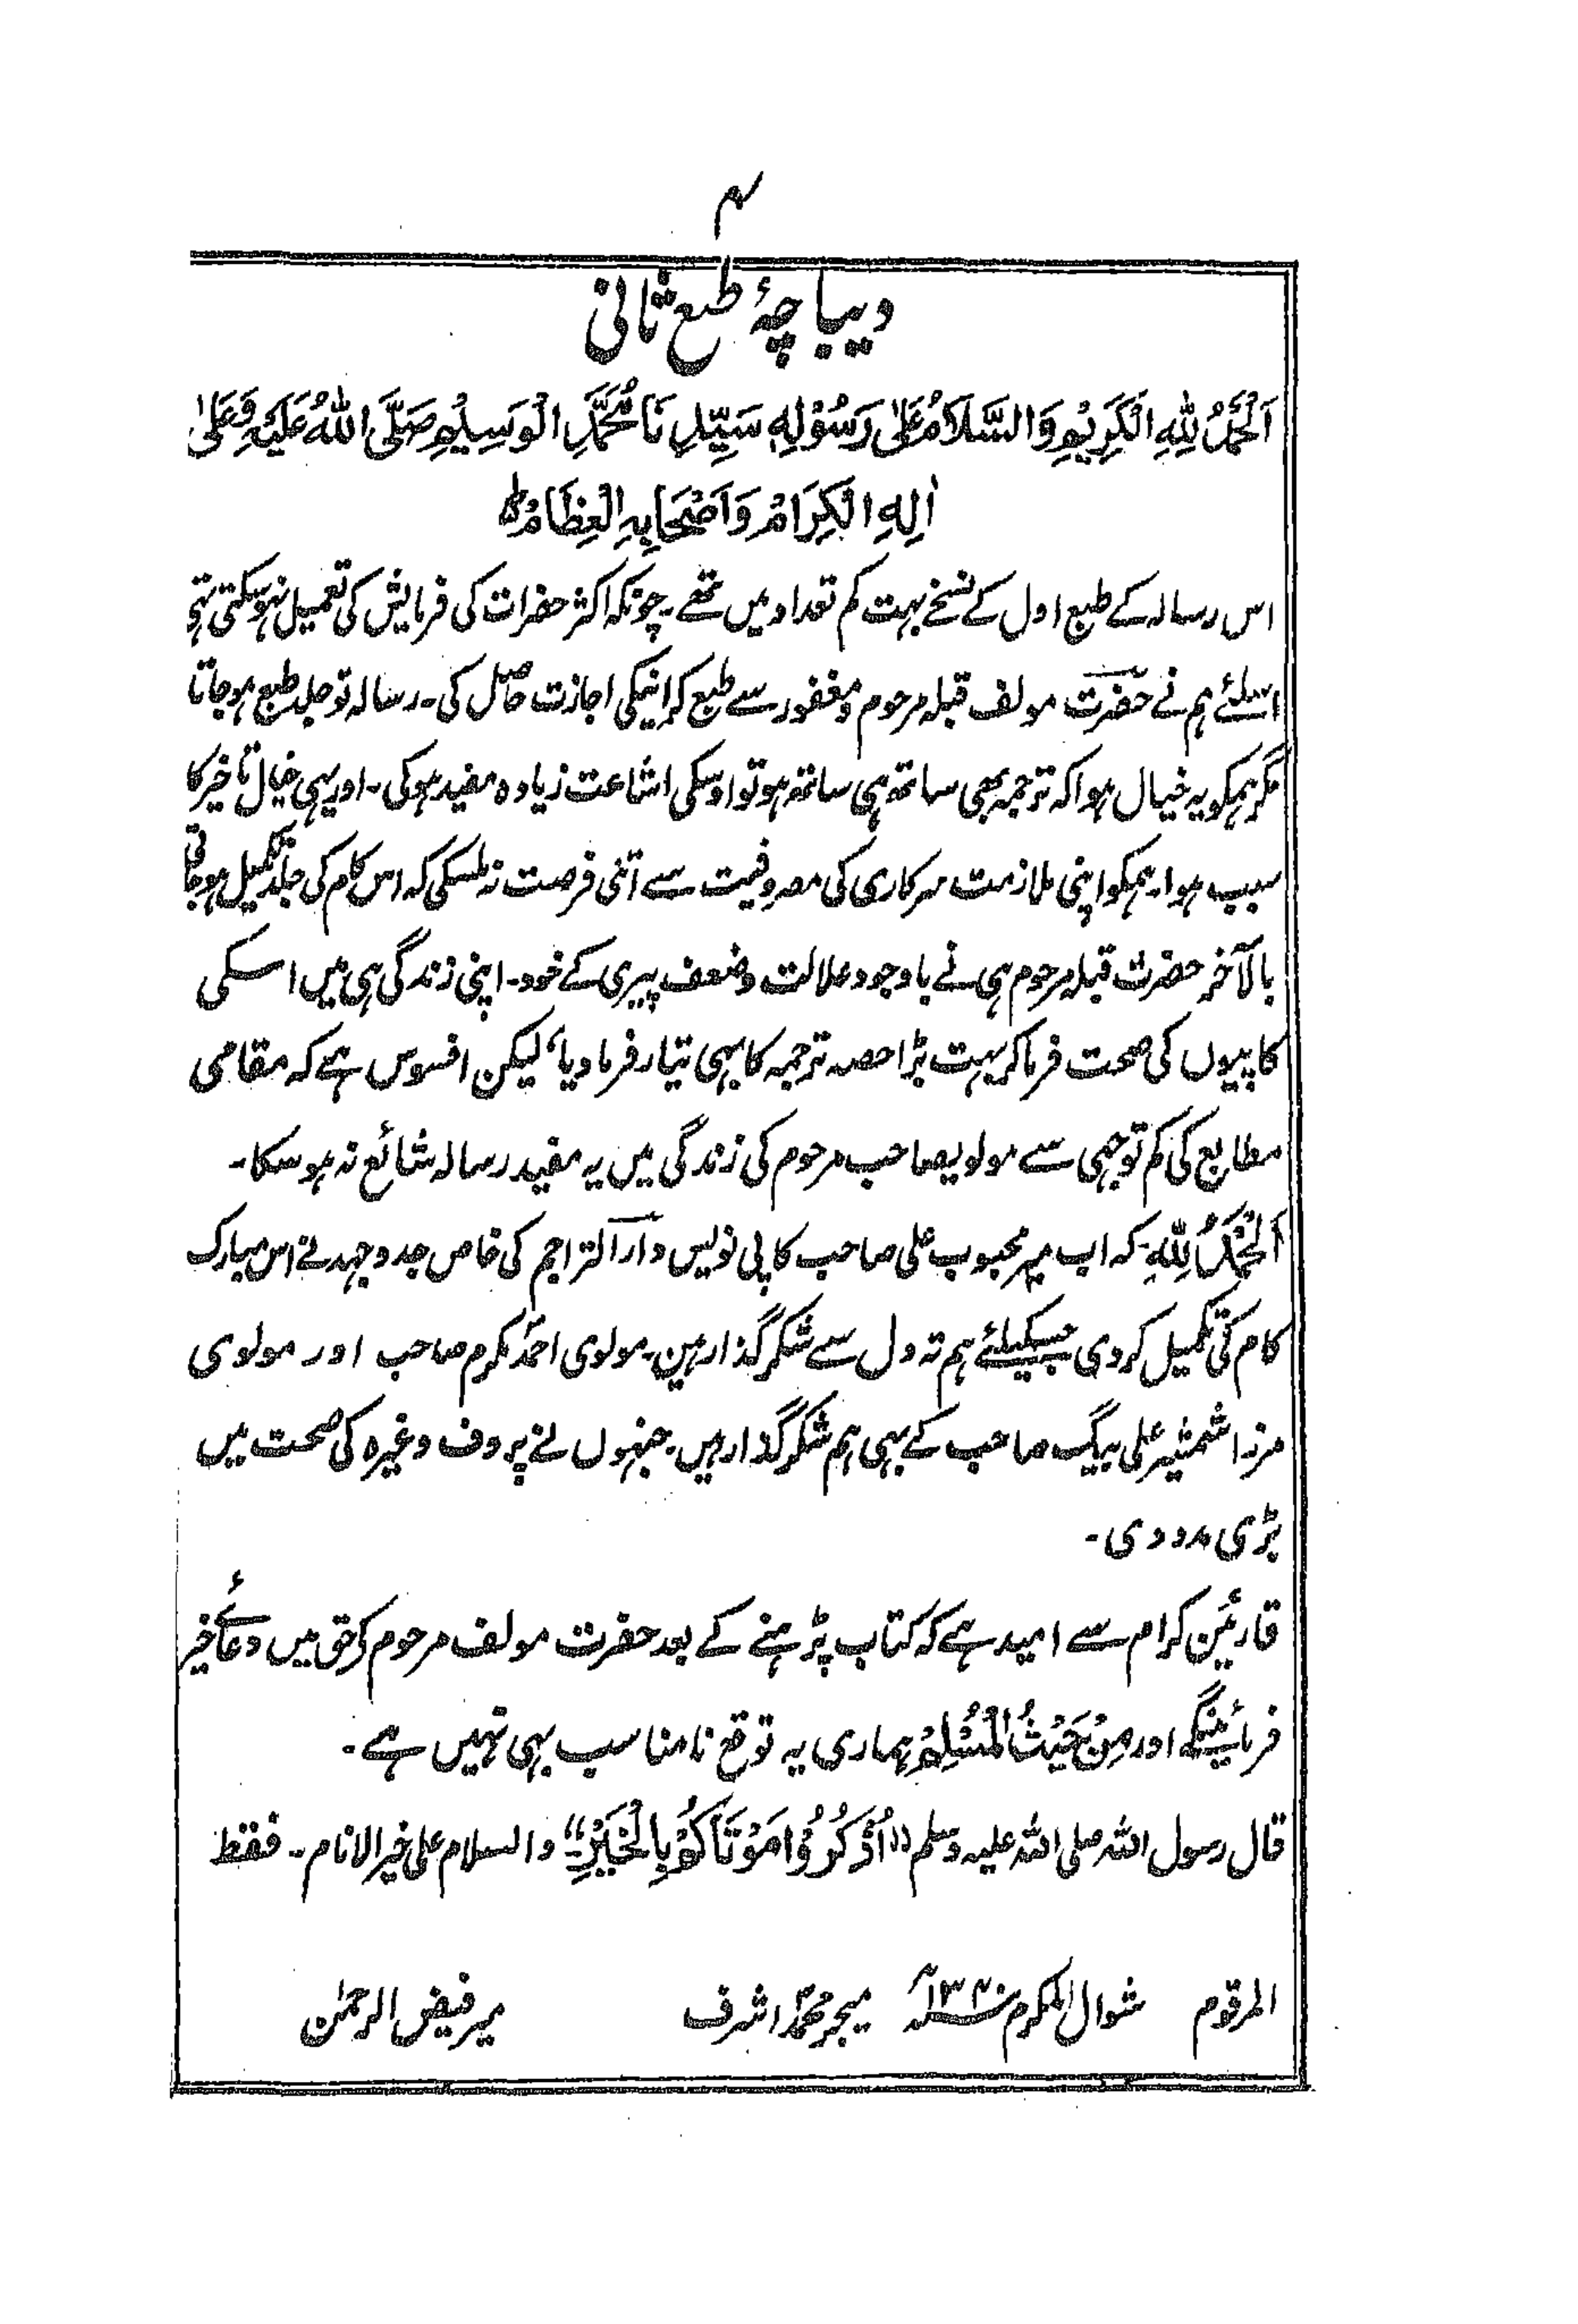 ۴
دیباچۂ طبع ثانی
اَلْحَمْدُ لِلّٰہِ الْکَرِیْمِ وَالسَّلَامُ عَلٰی رَسُوْلِہٖ سَیِّدِنَا مُحَمَّدِ الْوَسِیْمِ صَلَّی اللّٰہُ عَلَیْہِ وَعَلٰی
اٰلِہِ الْکِرَامْ وَاَصْحَابِہِ الْعِظَامْ ط
اس رسالہ کے طبع اول کے نسخے بہت کم تعداد میں تھے۔ چونکہ اکثر حضرات کی فرمایش کی تعمیل نہوسکتی تہی
اسلئے ہم نے حضرت مولف قبلہ مرحوم و مغفور سے طبع کرانیکی اجازت حاصل کی۔ رسالہ تو جلد طبع ہوجاتا
مگر ہمکو یہ خیال ہوا کہ ترجمہ بھی ساتھ ہی ساتھ ہو تو اوسکی اشاعت زیادہ مفید ہوگی۔ اور یہی خیال تاخیر کا
سبب ہوا۔ ہمکو اپنی ملازمت سرکاری کی مصروفیت سے اتنی فرصت نہ ملسکی کہ اس کام کی جلد تکمیل ہوجاتی
بالآخر حضرت قبلہ مرحوم ہی نے باوجود علالت و ضعف پیری کے خود۔ اپنی زندگی ہی میں اسکی
کاپیوں کی صحت فرماکر بہت بڑا حصہ ترجمہ کا بہی تیار فرمادیا، لیکن افسوس ہے کہ مقامی
مطابع کی کم توجہی سے مولویصاحب مرحوم کی زندگی میں یہ مفید رسالہ شائع نہ ہوسکا۔
اَلْحَمْدُ لِلّٰہِ۔ کہ اب میر محبوب علی صاحب کاپی نویس دار التراجم کی خاص جدوجہد نے اس مبارک
کام کی تکمیل کردی جسکیلئے ہم تہ دل سے شکر گذار ہین۔ مولوی احمد مکرم صاحب اور مولوی
مرزا شمشیر علی بیگ صاحب کے بہی ہم شکر گذار ہیں۔ جنہوں نے پروف وغیرہ کی صحت میں
بڑی مدد دی۔
قارئین کرام سے امید ہے کہ کتاب پڑہنے کے بعد حضرت مولف مرحوم کے حق میں دعائے خیر
فرمائینگے اور مِنْ حَیْثُ الْمُسْلِمْ ہماری یہ توقع نا مناسب بہی نہیں ہے۔
قال رسول اللہ صلی اللہ علیہ وسلم "اُذْکُرُوْا مَوْتَاکُمْ بِالْخَیْرِ" والسلام علی خیر الانام۔ فقط
المرقوم شوال المکرم سنہ ۱۳۴۰ میجر محمد اشرف میر فیض الرحمٰن